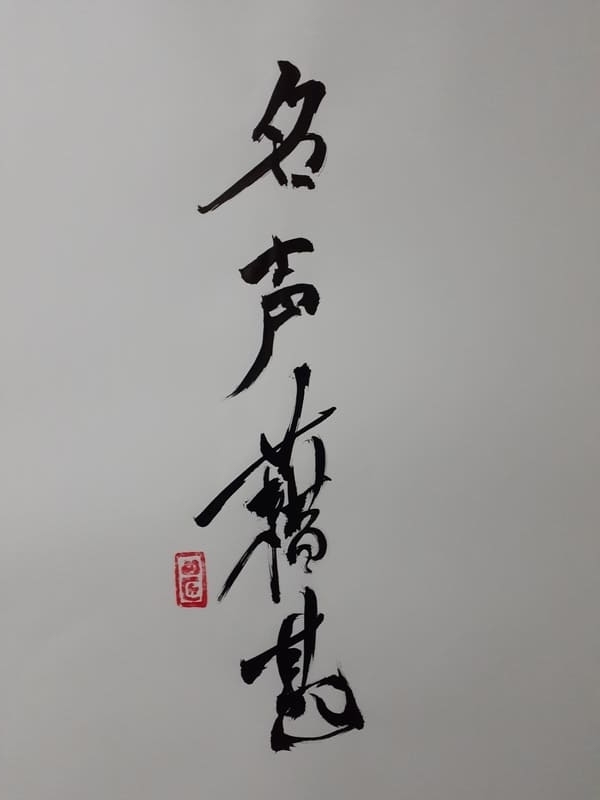 名声藉甚